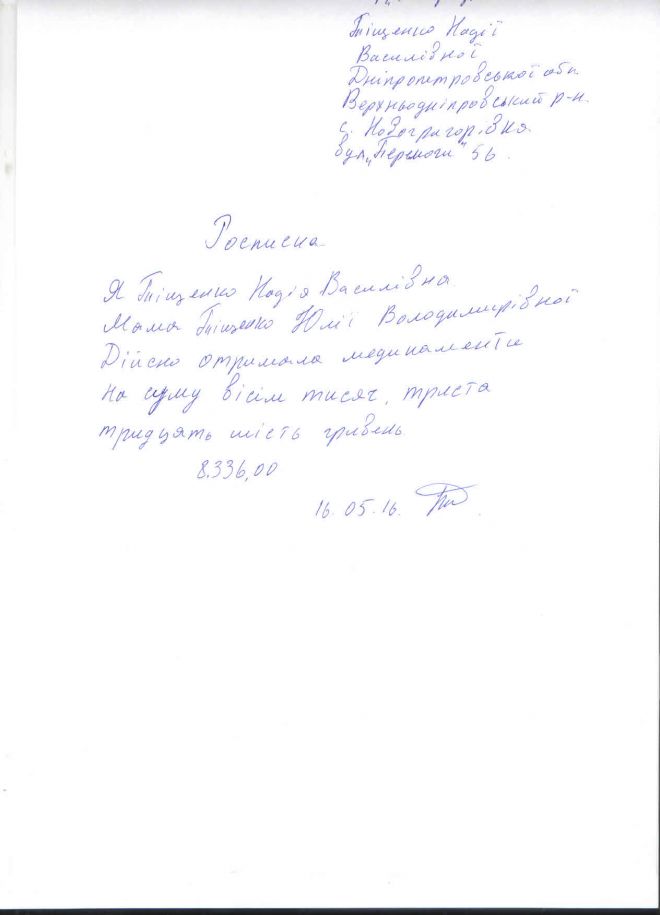 Тіщенко Надії
Василівної
Дніпропетровської обл.
Верхньодніпровський р-н.
с. Новогригорівка
вул „Перемоги" 56.
Росписка
Я Тіщенко Надія Василівна
Мама Тіщенко Юлії Володимирівної
Дійсно отримала медикаменти
на суму вісім тисяч, триста
тридцять шість гривень
8.336,00
16.05.16.